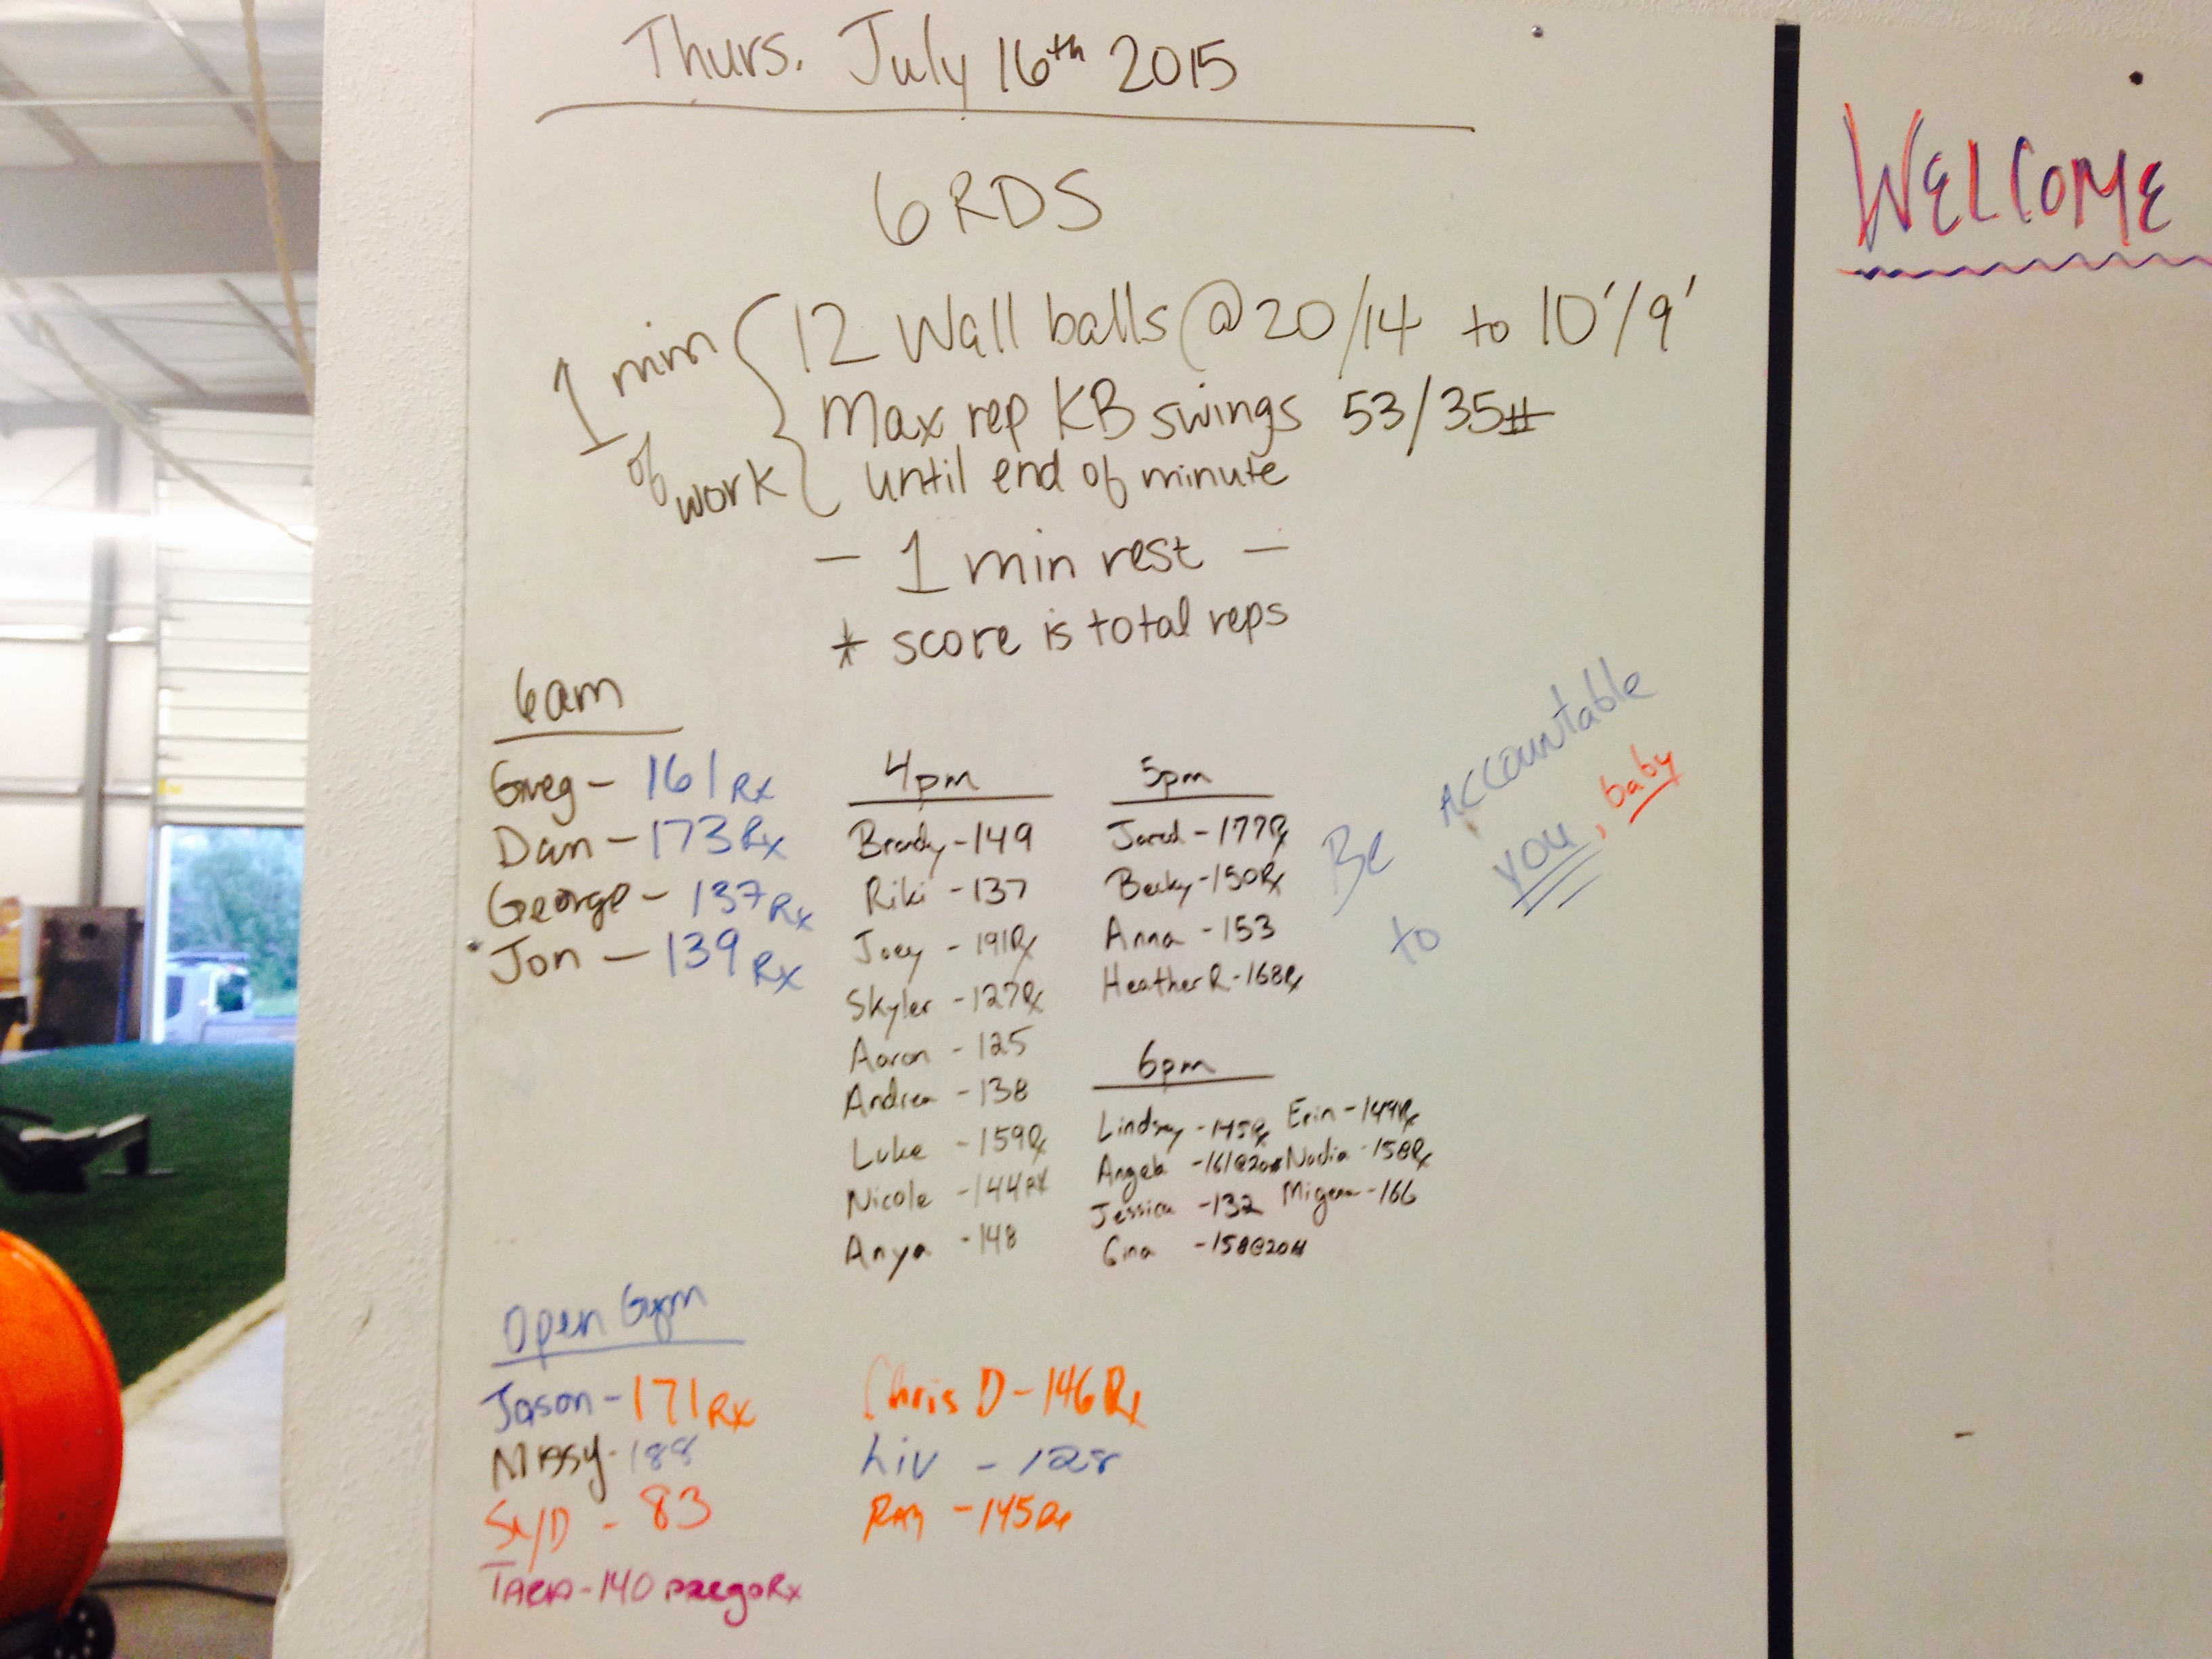 Thurs. July 16th 2015
6 RDS
1 min of work
12 Wall balls @ 20/14 to 10'/9'
Max rep KB swings 53/35#
until end of minute
- 1 min rest -
* score is total reps
6am
Greg - 161 Rx
Dan - 173 Rx
George - 137 Rx
Jon - 139 Rx
4pm
Brady - 149
Riki - 137
Joey - 191 Rx
Skyler - 127 Rx
Aaron - 125
Andrea - 138
Luke - 159 Rx
Nicole - 144 RX
Anya - 148
5pm
Jared - 177 Rx
Becky - 150 Rx
Anna - 153
Heather R - 168 Rx
6pm
Lindsay - 145 Rx
Angela - 161 @ 20#
Jessica - 132
Gina - 158 @ 20#
Erin - 149 Rx
Nadia - 158 Rx
Migena - 166
Be Accountable
to you, baby
Open Gym
Jason - 171 Rx
Missy - 188
- 83
TARA - 140 PREGO Rx
Chris D - 146 Rx
Liv - 128
- 145 Rx
WELCOME